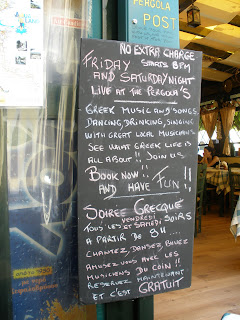 PERGOLA
POST
NO EXTRA CHARGE
FRIDAY STARTS 8PM
AND SATURDAY NIGHT
LIVE AT THE PERGOLA'S
GREEK MUSIC AND SONGS
DANCING, DRINKING, SINGING
WITH GREAT LOCAL MUSICIANS
SEE WHAT GREEK LIFE IS
ALL ABOUT!! JOIN US
BOOK NOW!!
AND HAVE FUN!!
SOIRÉE GRECQUE
VENDREDI
TOUS LES ET SAMEDI SOIRS
A PARTIR DE 8H....
CHANTEZ, DANSEZ, BUVEZ
AMUSEZ VOUS AVEC LES
MUSICIENS DU COIN!!
RESERVEZ MAINTENANT
ET C'EST GRATUIT